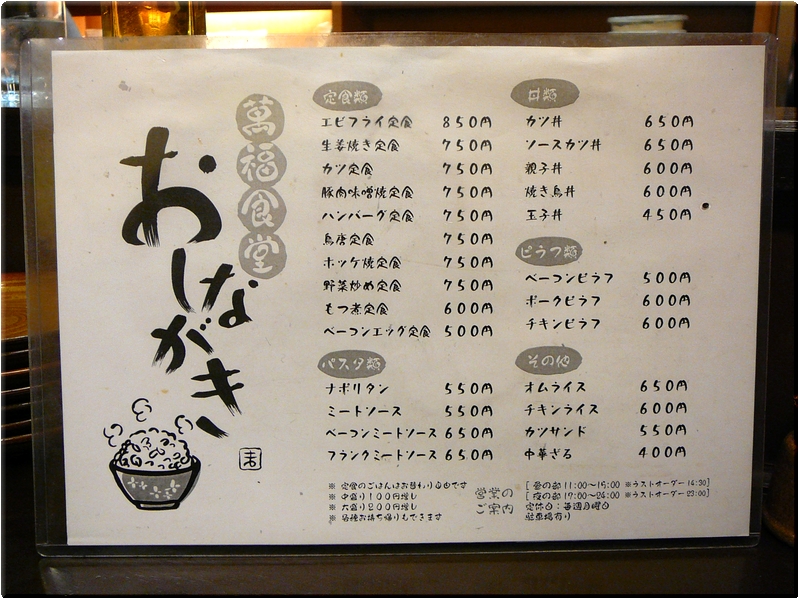 萬福食堂
おしながき
定食類
エビフライ定食 850円
生姜焼き定食 750円
カツ定食 750円
豚肉味噌焼定食 750円
ハンバーグ定食 750円
鳥唐定食 750円
ホッケ焼定食 750円
野菜炒め定食 750円
もつ煮定食 600円
ベーコンエッグ定食 500円
パスタ類
ナポリタン 550円
ミートソース 550円
ベーコンミートソース 650円
フランクミートソース 650円
丼類
カツ丼 650円
ソースカツ丼 650円
親子丼 600円
焼き鳥丼 600円
玉子丼 450円
ピラフ類
ベーコンピラフ 500円
ポークピラフ 600円
チキンピラフ 600円
その他
オムライス 650円
チキンライス 600円
カツサンド 550円
中華ざる 400円
※ 定食のごはんはお替わり自由です
※ 中盛り100円増し
※ 大盛り200円増し
※ 各種お持ち帰りもできます
営業のご案内
[ 昼の部 11:00〜15:00 ※ラストオーダー 14:30]
[ 夜の部 17:00〜24:00 ※ラストオーダー 23:00]
定休日：毎週月曜日
駐車場有り